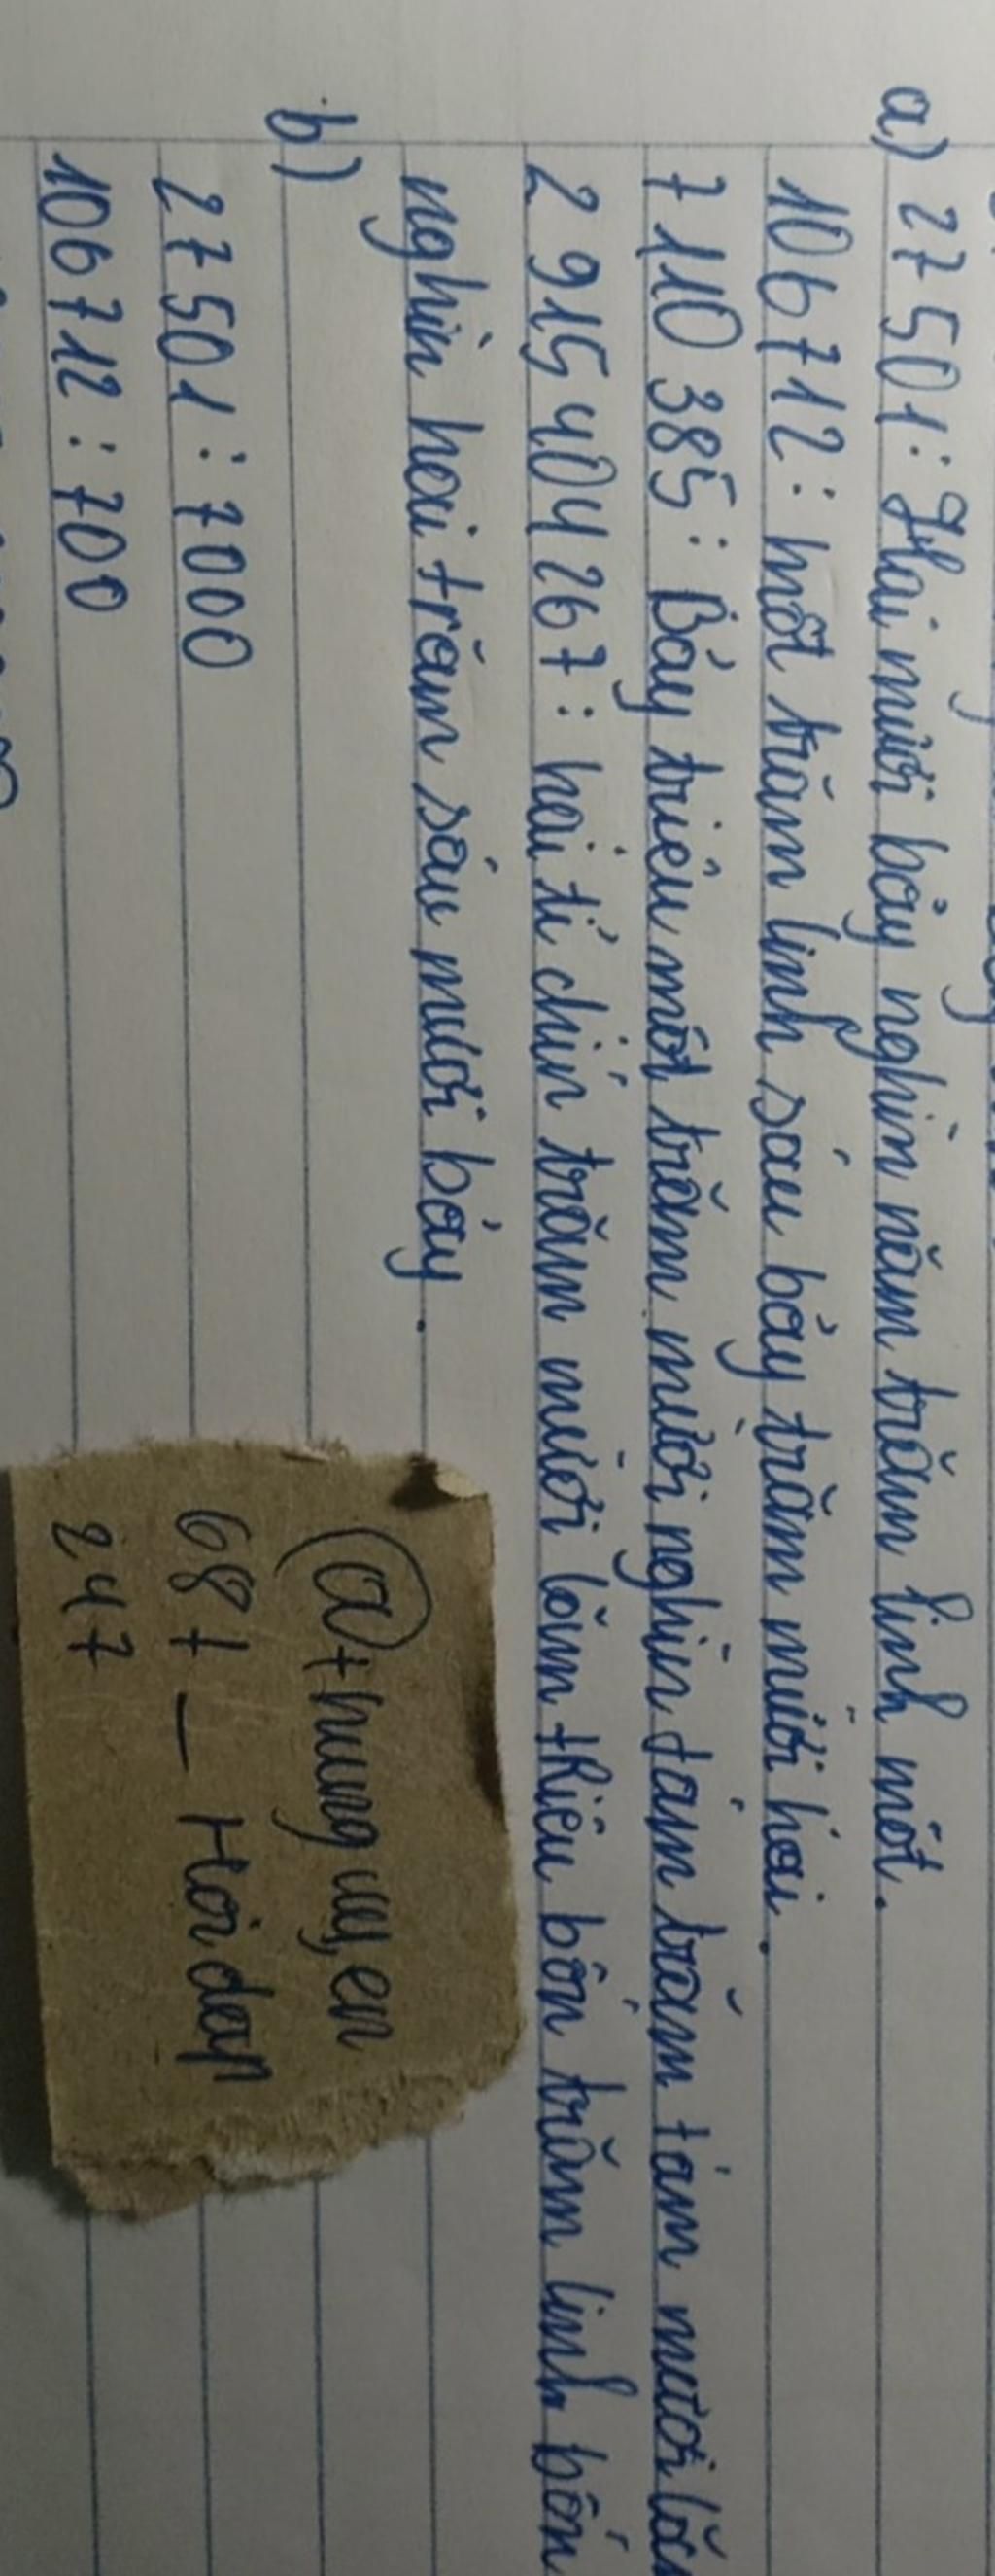 a) 27 501: Hai mươi bảy nghìn năm trăm linh một.
106 712: một trăm linh sáu bảy trăm mười hai.
7 110 385: Bảy triệu một trăm mười nghìn tám trăm tám mươi lăm
2 915 404 267: hai tỉ chín trăm mười lăm triệu bốn trăm linh bốn
nghìn hai trăm sáu mươi bảy.
b)
27 501: 7000
106 712: 700
@thunguyen
687 — Hoidap
247